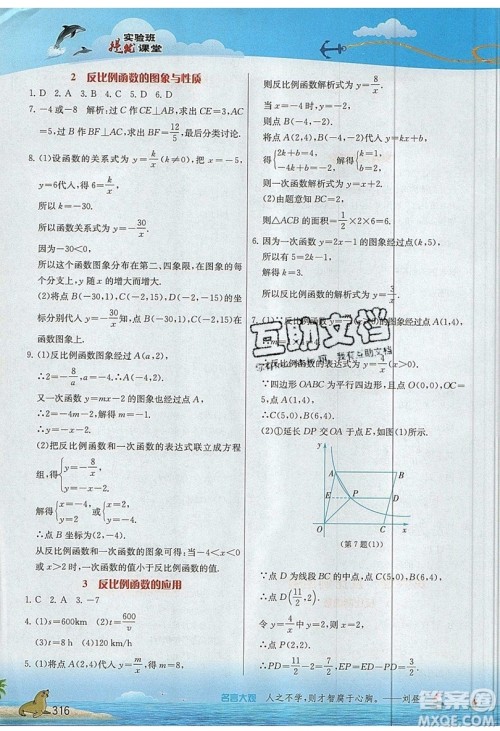 实验班
提优课堂
2 反比例函数的图象与性质
1. D 2. A 3. B 4. C 5. D 6. D
7. -4或-8 解析:过C作CE⊥AB,求出CE=3,过B作BF⊥AC,求出BF=12/5,最后分类讨论.
8. (1)设函数的关系式为 y=k/x(k≠0),把x=-5,
y=6代入,得6=k/-5,
所以k=-30.
所以函数关系式为 y=-30/x.
因为-30<0,
所以这个函数图象分布在第二、四象限,在图象的每
个分支上,y随x的增大而增大.
(2)将点B(-30,1),C(-2,15),D(-2,-15)的坐
标分别代入y=-30/x知点B(-30,1),C(-2,15)在
函数图象上.
9. (1)反比例函数图象经过点A(a,2),
∴2=-8/a,∴a=-4.
又一次函数y=mx-2的图象也经过点A,
∴2=-4m-2,∴m=-1.
(2)把反比例函数和一次函数的表达式联立成方程
组,得{y=-8/x, y=-x-2.
解得{x=-4, y=2或{x=2, y=-4.
∴点B(2,-4).
从反比例函数和一次函数的图象看,当-4<x<0或
x>2时,一次函数的值小于反比例函数的值.
3 反比例函数的应用
1. C 2. A 3. -7
4. (1)s=600km (2)t=600/v
(3)t=8h (4)v=120
5. (1)将点A(2,4)代入y=m/x,得m=8,
则反比例函数解析式为y=8/x.
当x=-4时,y=-2,
则点B(-4,-2).
将点A(2,4),B(-4,-2)代入y=kx+b,
得{2k+b=4, -4k+b=-2.解得{k=1, b=2.
则一次函数解析式为y=x+2.
(2)由题意知BC=2,
则△ACB的面积=1/2×2×6=6.
6. 因为一次函数y=2x-1的图象经过点(2,a),
所以a=3.
所以反比例函数解析式为y=
7. (1)∵反比例函数经过点A(1,4),
∵四边形OABC为平行四边形,且点O(0,0),OC=
5,A(1,4),
∴C(5,0),B(6,4).
(2)①延长DP交OA于点E,如图(1).
y
A
B
E
P
D
O
C
x
(第7题(1))
∵点D为线段BC的中点,点C(5,0),B(6,4),
∴点D(11/2,2).
∵点A(1,4),O(0,0),
互助文档
316
名言大观 人之不学,则才智腐于心胸。——刘昼
答案圈
MXQE.COM